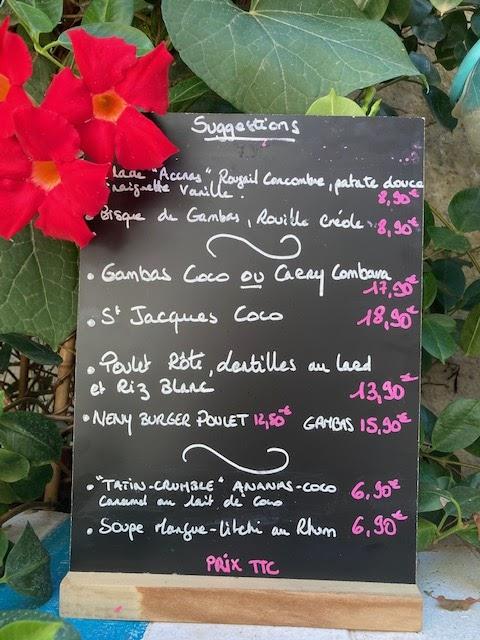 Suggestions
"Accras", Rougail Concombre, patate douce
Vanille. 8,90€
Bisque de Gambas, Rouille Créole 8,90€
• Gambas Coco ou Caery Combava
17,90€
• St Jacques Coco 18,90€
• Poulet Rôti, Lentilles au Lard
et Riz Blanc 13,90€
• NENY BURGER POULET 12,80€ GAMBAS 15,90€
• "TATIN-CRUMBLE" ANANAS-COCO 6,90€
Caramel au lait de Coco
• Soupe Mangue-Litchi au Rhum 6,90€
PRIX TTC